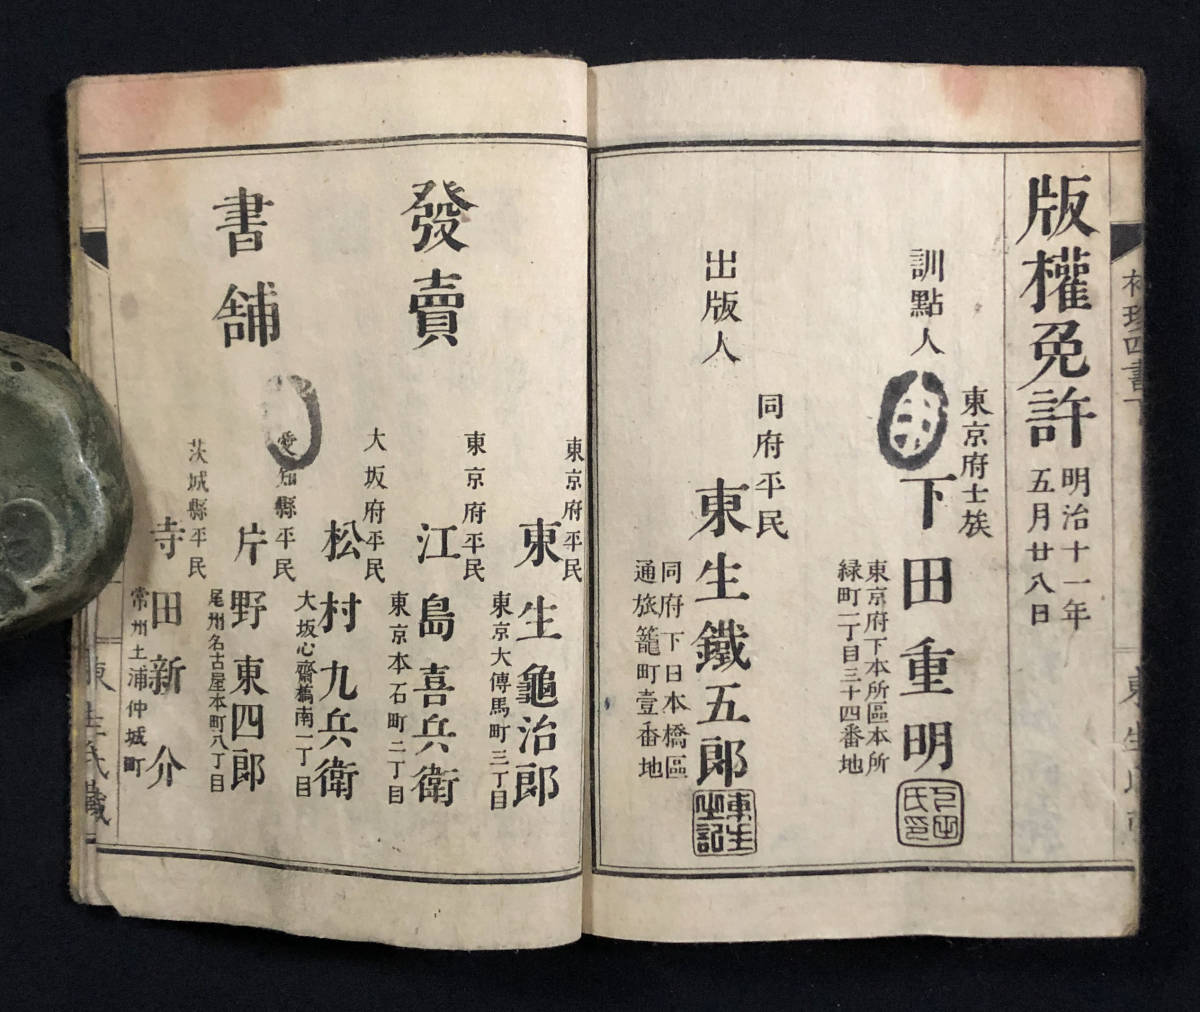 版權免許
明治十一年
五月廿八日
訓點人
東京府士族
下田重明
東京府下本所區本所
緑町二丁目三十四番地
出版人
同府平民
東生鐵五郎
同府下日本橋區
通旅籠町壹番地
東生之記
發賣
書舖
東京府平民
東生龜治郎
東京大傳馬町三丁目
東京府平民
江島喜兵衛
東京本石町二丁目
大坂府平民
松村九兵衛
大坂心齋橋南一丁目
愛知縣平民
片野東四郎
尾州名古屋本町八丁目
茨城縣平民
寺田新介
常州土浦仲城町
東生氏藏